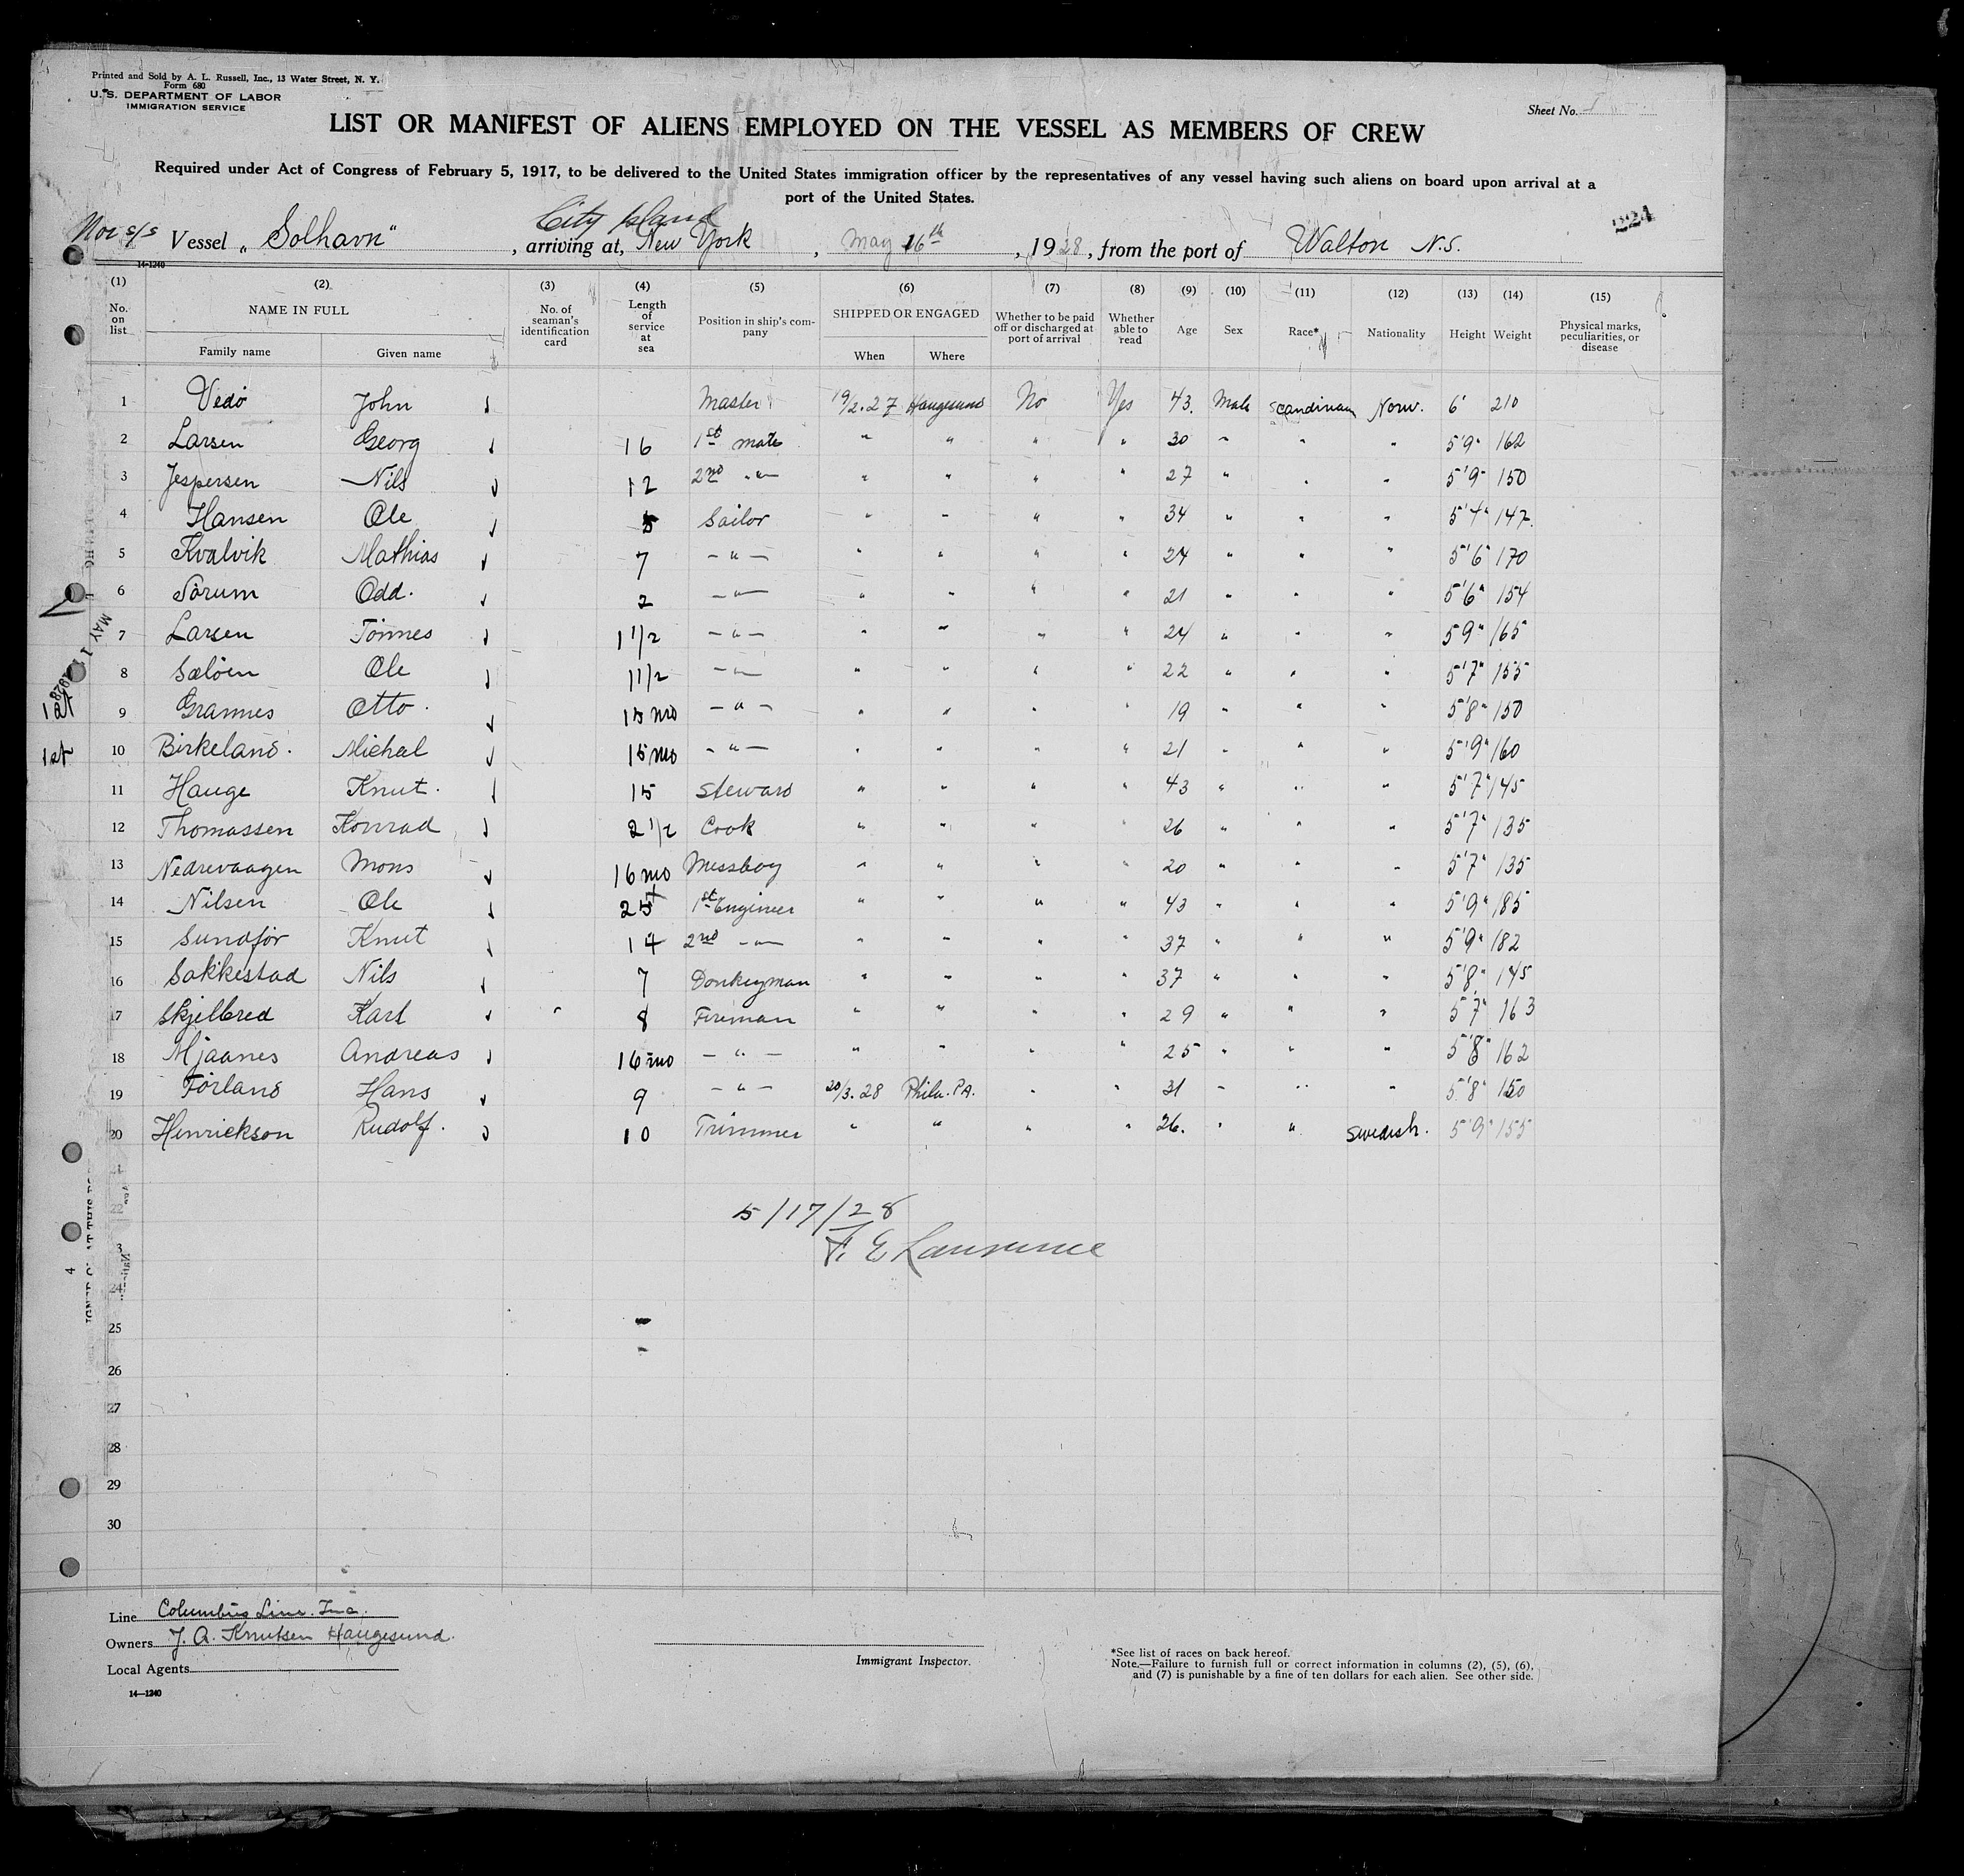 Printed and Sold by A. L. Russell, Inc., 13 Water Street, N. Y.
Form 680
U. S. DEPARTMENT OF LABOR
IMMIGRATION SERVICE
Sheet No.
LIST OR MANIFEST OF ALIENS EMPLOYED ON THE VESSEL AS MEMBERS OF CREW
Required under Act of Congress of February 5, 1917, to be delivered to the United States immigration officer by the representatives of any vessel having such aliens on board upon arrival at a
port of the United States.
224
City Island
Nor s/s Vessel „ Solhavn“, arriving at, New York, May 16th, 1928, from the port of Walton N.S.
14-1240
(1) (2) (3) (4) (5) (6) (7) (8) (9) (10) (11) (12) (13) (14) (15)
No. on list NAME IN FULL Family name Given name No. of seaman's identification card Length of service at sea Position in ship's company SHIPPED OR ENGAGED When Where Whether to be paid off or discharged at port of arrival Whether able to read Age Sex Race* Nationality Height Weight Physical marks, peculiarities, or disease
1 Vedö John Master 19/2.27 Haugesund No Yes 43. Male Scandinavn Norw. 6' 210
2 Larsen Georg 16 1st mate " " " " 30 " " " 5'9" 162
3 Jespersen Nils 12 2nd -"- " " " " 27 " " " 5'9" 150
4 Hansen Ole 5 Sailor " " " " 34 " " " 5'4" 147.
5 Kvalvik Mathias 7 -"- " " " " 24 " " " 5'6" 170
6 Sörum Odd. 2 -"- " " " " 21 " " " 5'6" 154
7 Larsen Tönnes 1 1/2 -"- " " " " 24 " " " 5'9" 165
8 Sælöen Ole 1 1/2 -"- " " " " 22 " " " 5'7" 155
1st 9 Grannes Otto. 15 mo -"- " " " " 19 " " " 5'8" 150
1st 10 Birkeland. Michal 15 mo -"- " " " " 21 " " " 5'9" 160
11 Hauge Knut. 15 Steward " " " " 43 " " " 5'7" 145
12 Thomassen Konrad 2 1/2 Cook " " " " 26 " " " 5'7" 135
13 Nedrevaagen Mons 16 mo Messboy " " " " 20 " " " 5'7" 135
14 Nilsen Ole 25 1st Engineer " " " " 43 " " " 5'9" 185
15 Sundför Knut 14 2nd -"- " " " " 37 " " " 5'9" 182
16 Sakkestad Nils 7 Donkeyman " " " " 37 " " " 5'8" 145
17 Skjelbred Karl 8 Fireman " " " 29 " " " 5'7" 163
18 Mjaanes Andreas 16 mo -"- " " " " 25 " " " 5'8" 162
19 Förland Hans 9 -"- 20/3.28 Phila. PA. " " 31 " " " 5'8" 150
20 Henrickson Rudolf. 10 Trimmer " " " " 26. " " Swedish. 5'9" 155
22
5/17/28
F. E Lawrence
24
25
26
27
28
29
30
MAY 1
1928
4
Line Columbus Line. Inc.
Owners J. A. Knutsen Haugesund.
Local Agents
14—1240
Immigrant Inspector.
*See list of races on back hereof.
Note.—Failure to furnish full or correct information in columns (2), (5), (6),
and (7) is punishable by a fine of ten dollars for each alien. See other side.